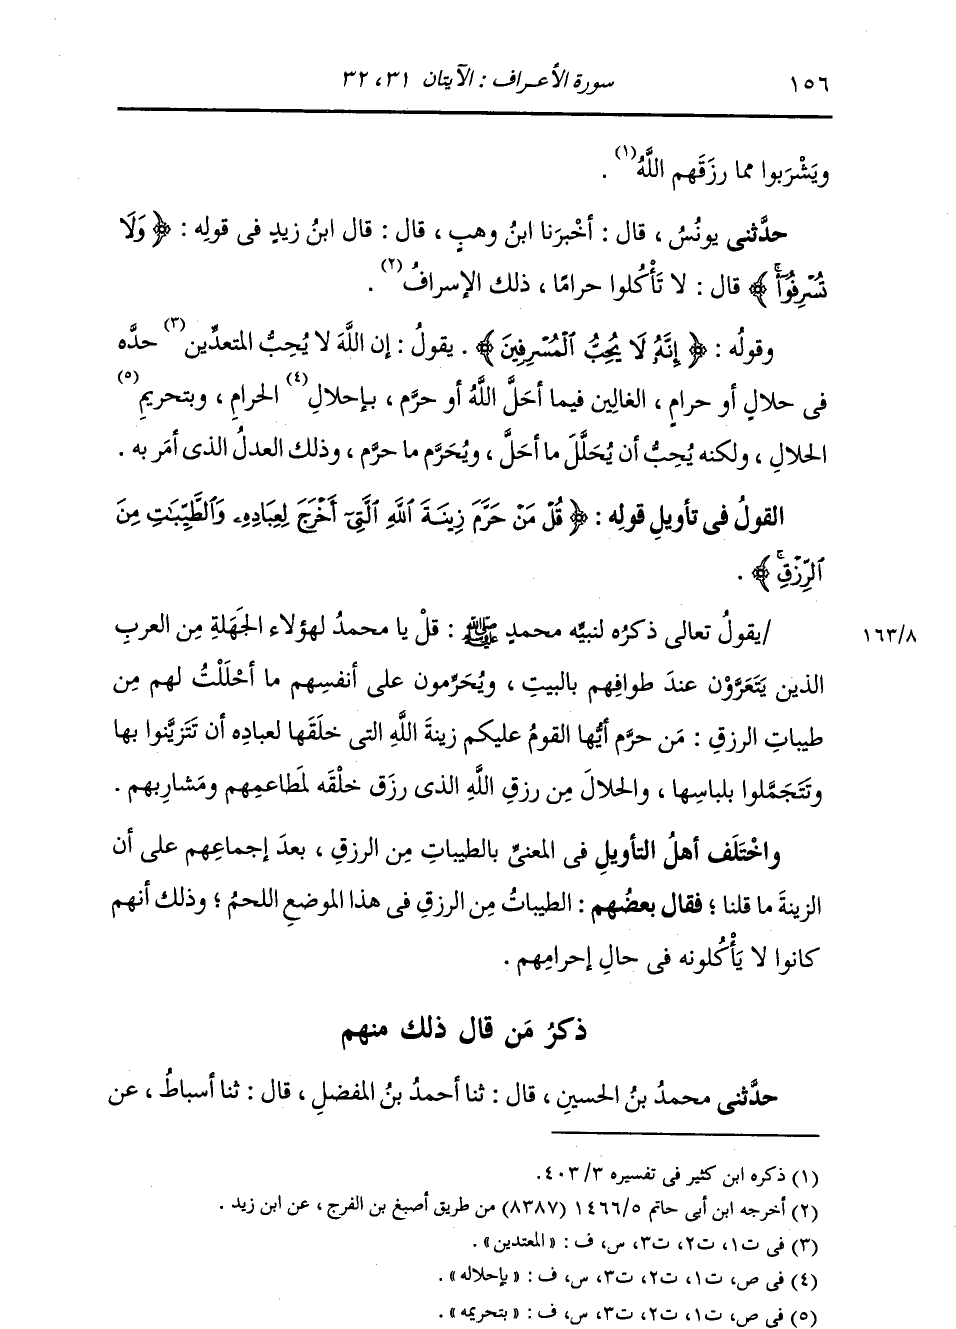 ١٥٦ سورة الأعراف : الآيتان ٣١، ٣٢
ويَشْرَبوا مما رزَقَهم اللَّهُ(١) .
حدَّثنى يونُسُ ، قال : أخْبرَنا ابنُ وهبٍ ، قال : قال ابنُ زيدٍ فى قولِه : ﴿ وَلَا
تُسْرِفُوٓاْۚ ﴾ قال : لا تَأْكُلوا حرامًا ، ذلك الإسرافُ(٢) .
وقولُه : ﴿ إِنَّهُۥ لَا يُحِبُّ ٱلْمُسْرِفِينَ ﴾ . يقولُ : إن اللَّهَ لا يُحِبُّ المتعدِّين(٣) حدَّه
فى حلالٍ أو حرامٍ ، الغالِين فيما أحَلَّ اللَّهُ أو حرَّم ، بإحلالِ(٤) الحرامِ ، وبتحريمِ(٥)
الحلالِ ، ولكنه يُحِبُّ أن يُحَلَّلَ ما أحَلَّ ، ويُحَرَّم ما حرَّم ، وذلك العدلُ الذى أمَر به .
القولُ فى تأويلِ قولِه : ﴿ قُلْ مَنْ حَرَّمَ زِينَةَ ٱللَّهِ ٱلَّتِىٓ أَخْرَجَ لِعِبَادِهِۦ وَٱلطَّيِّبَٰتِ مِنَ
ٱلرِّزْقِۚ ﴾ .
/يقولُ تعالى ذكرُه لنبيِّه محمدٍ ﷺ : قلْ يا محمدُ لهؤلاء الجَهَلةِ مِن العربِ ١٦٣/٨
الذين يَتَعَرَّوْن عندَ طوافِهم بالبيتِ ، ويُحَرِّمون على أنفسِهم ما أحْلَلْتُ لهم مِن
طيباتِ الرزقِ : مَن حرَّم أيُّها القومُ عليكم زينةَ اللَّهِ التى خلَقَها لعبادِه أن تَتَزيَّنوا بها
وتَتَجَمَّلوا بلباسِها ، والحلالَ مِن رزقِ اللَّهِ الذى رزَق خلْقَه لمَطاعمِهم ومَشارِبهم .
واخْتَلَف أهلُ التأويلِ فى المعنىِّ بالطيباتِ مِن الرزقِ ، بعدَ إجماعِهم على أن
الزينةَ ما قلنا ؛ فقال بعضُهم : الطيباتُ مِن الرزقِ فى هذا الموضعِ اللحمُ ؛ وذلك أنهم
كانوا لا يَأْكُلونه فى حالِ إحرامِهم .
ذكرُ مَن قال ذلك منهم
حدَّثنى محمدُ بنُ الحسينِ ، قال : ثنا أحمدُ بنُ المفضلِ ، قال : ثنا أسباطُ ، عن
(١) ذكره ابن كثير فى تفسيره ٤٠٣/٣.
(٢) أخرجه ابن أبى حاتم ١٤٦٦/٥ (٨٣٨٧) من طريق أصبغ بن الفرج ، عن ابن زيد .
(٣) فى ت١، ت٢، ت٣، س، ف : «المعتدين» .
(٤) فى ص، ت١، ت٢، ت٣، س، ف : «بإحلاله» .
(٥) فى ص، ت١، ت٢، ت٣، س، ف : «بتحريمه» .